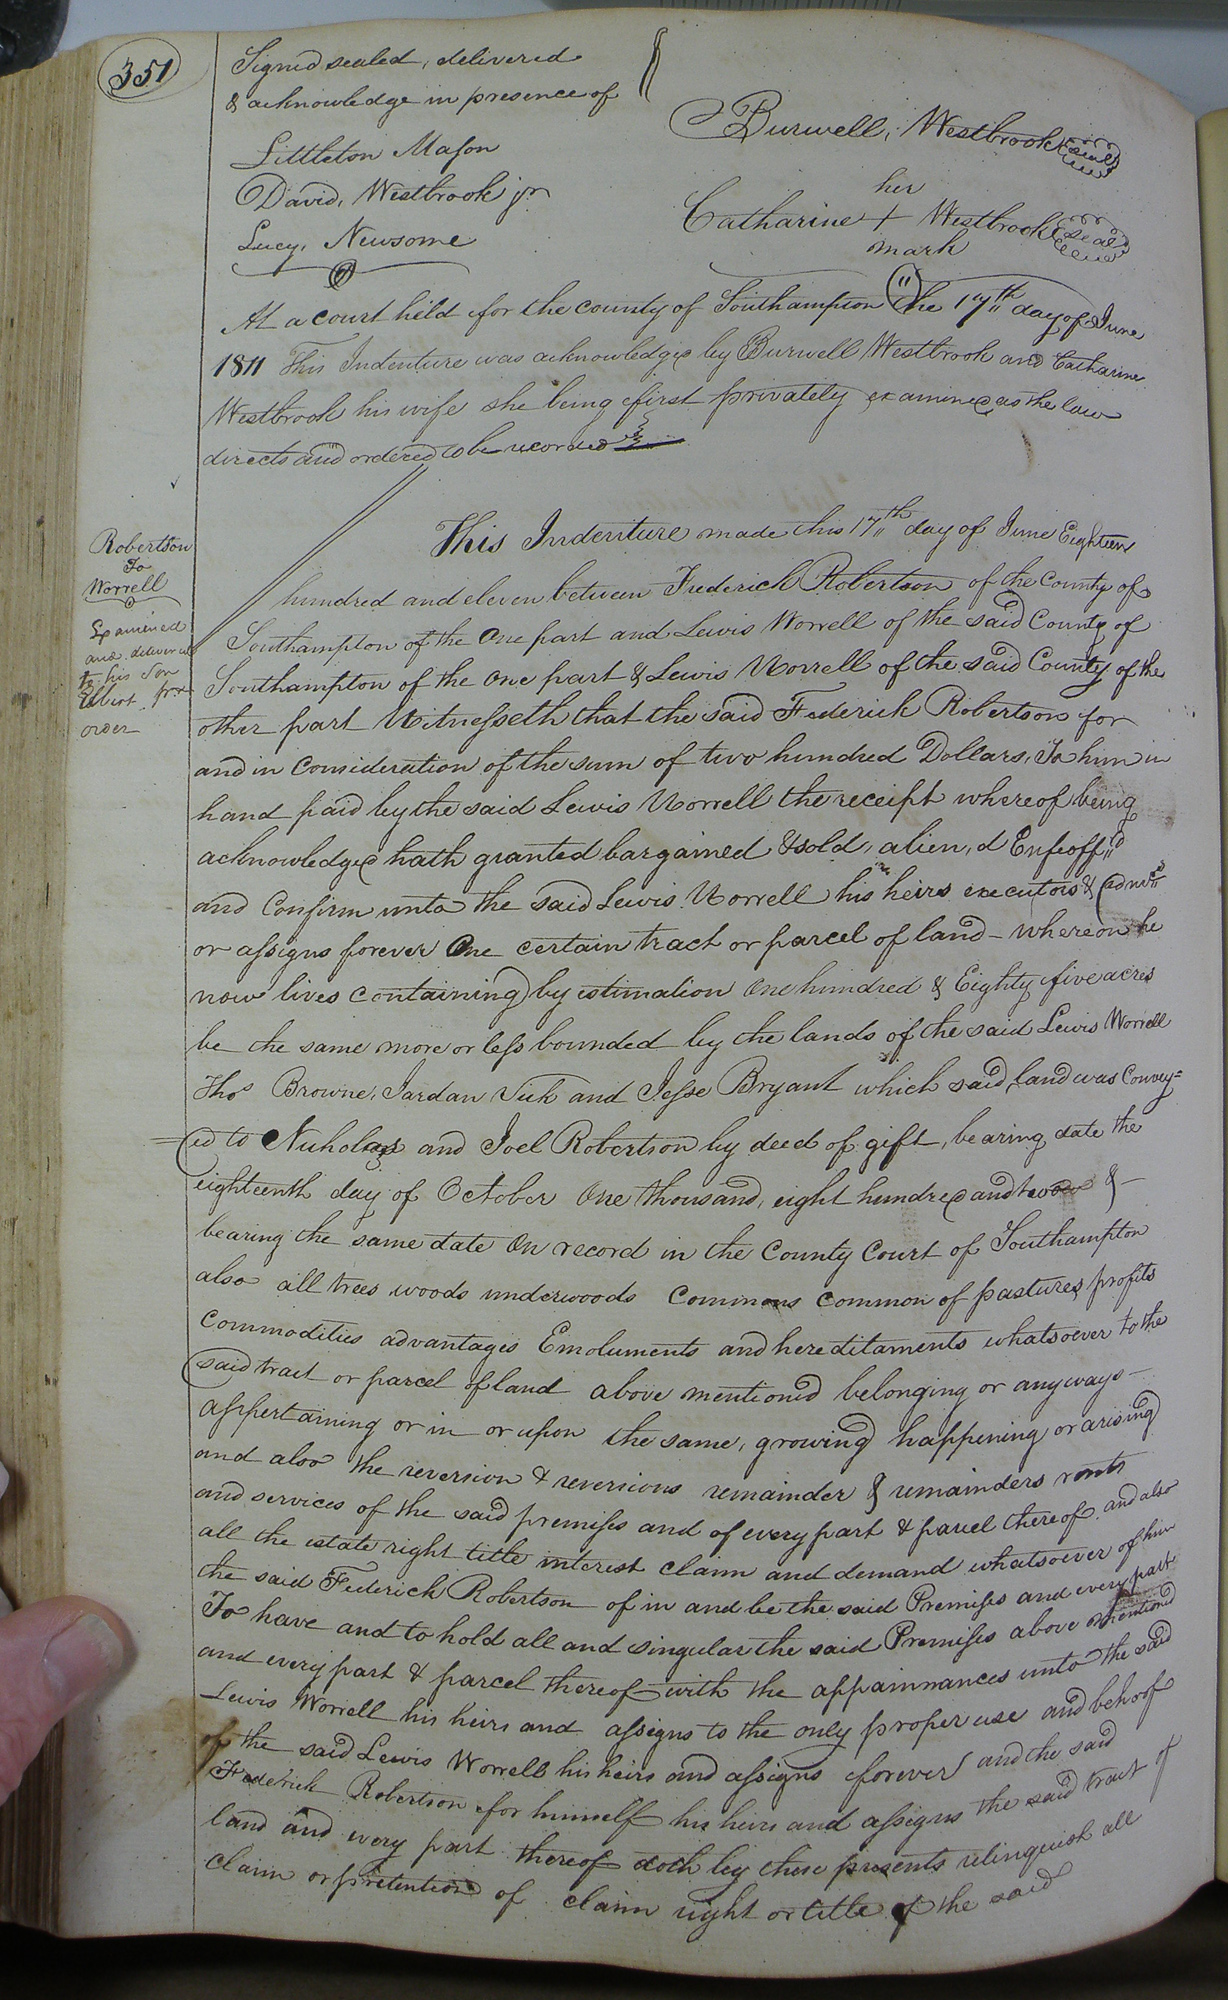 351
Signed sealed, delivered
& acknowledge in presence of
Burwell, Westbrook seal
Littleton Mason
David, Westbrook jr
her
Catharine + Westbrook seal
mark
Lucy, Newsome
At a court held for the county of Southampton the 17th day of June
1811 This Indenture was acknowledged by Burwell Westbrook and Catharine
Westbrook his wife she being first privately examined as the law
directs and ordered to be recorded
Robertson
To
Worrell
Examined
and delivered
to his Son
Elbert pr
order
This Indenture made this 17th day of June Eighteen
hundred and eleven between Frederick Robertson of the County of
Southampton of the One part and Lewis Worrell of the said County of
Southampton of the One part & Lewis Worrell of the said County of the
other part Witnesseth that the said Frederick Robertson for
and in Consideration of the sum of two hundred Dollars, To him in
hand paid by the said Lewis Worrell the receipt whereof being
acknowledged hath granted bargained & sold, alien,d Enfeoff,,d
and Confirm unto the said Lewis Worrell his heirs executors &
or assigns forever One certain tract or parcel of land - whereon he
now lives Containing by estimation One hundred & Eighty five acres
be the same more or less bounded by the lands of the said Lewis Worrell
Tho Browne, Jardan Vick and Jesse Bryant which said land was Convey=
=ed to Nicholas and Joel Robertson by deed of gift, bearing date the
eighteenth day of October One thousand, eight hundred and two &
bearing the same date On record in the County Court of Southampton
also all trees woods underwoods Commons common of pastures profits
Commodities advantages Emoluments and hereditaments whatsoever to the
said tract or parcel of land above mentioned belonging or anyways
appertaining or in or upon the same, growing happening or arising
and also the reversion & reversions remainder & remainders rents
and services of the said premises and of every part & parcel thereof and also
all the estate right title interest claim and demand whatsoever of him
the said Federick Robertson of in and be the said Premises and every part
To have and to hold all and singular the said Premises above mentioned
and every part & parcel thereof with the unto the said
Lewis Worrell his heirs and assigns to the only proper use and behoof
of the said Lewis Worrell his heirs and assigns forever and the said
Federick Robertson for himself his heirs and assigns the said tract of
land and every part thereof doth by these presents relinquish all
claim or pretention of claim right or title of the said